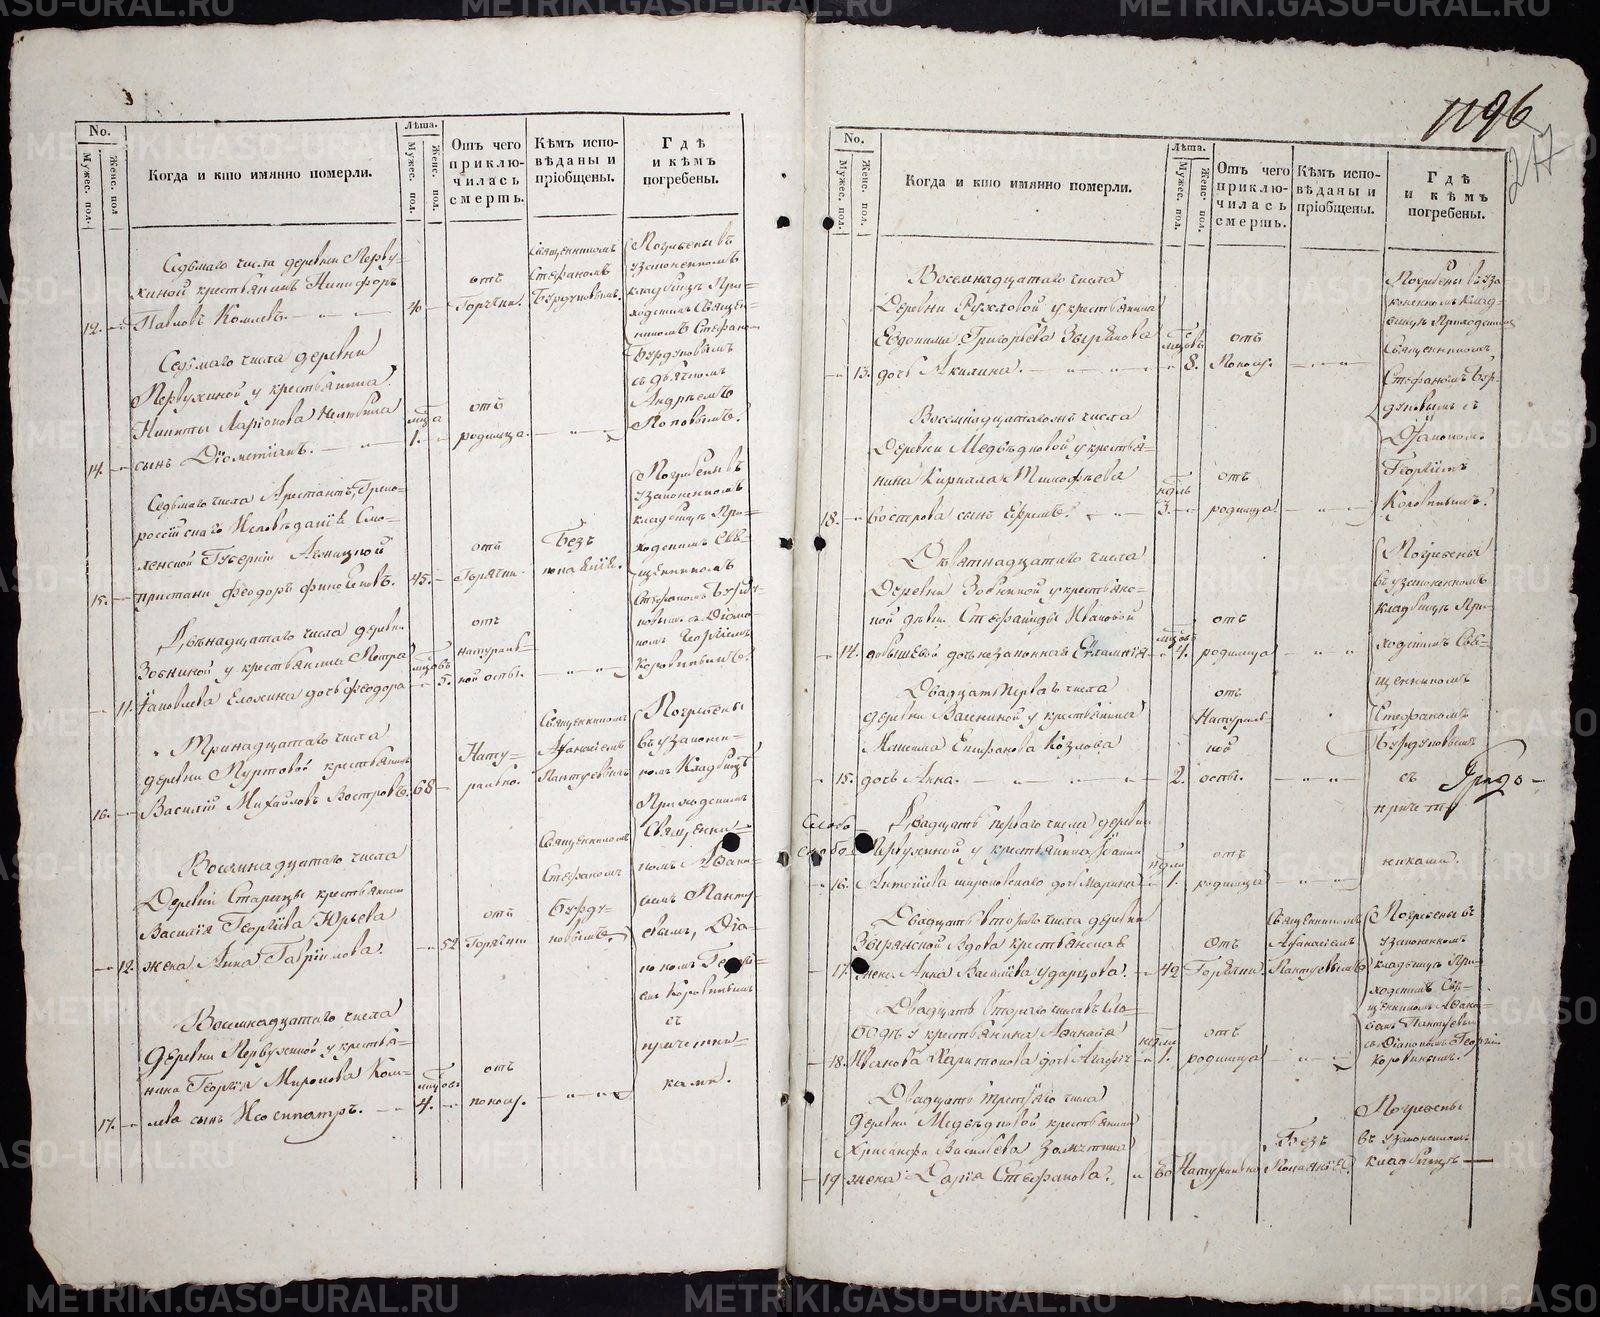 No.
Мужес. пол.
Женс. пол
Когда и кто имянно померли.
Лѣта.
Мужес. пол.
Женс. пол.
Отъ чего приклю-
чилась смерть.
Кѣмъ испо-
вѣданы и
пріобщены.
Гдѣ
и кѣмъ
погребены.
Седьмаго числа деревни Перву-
хиной крестьянинъ Никифоръ
Павловъ Комлевъ.
отъ
Горячки.
Священникомъ
Стефаномъ
Бурдуковымъ.
Погребены въ
узаконенномъ
кладбищѣ При-
ходскимъ Священ-
никомъ Стефано-
Бурдуковымъ
съ дьячкомъ
Андреемъ
Поповымъ.
Седьмаго числа деревни
Первухиной у крестьянина
Никиты Ларіонова
14. сынъ Діомитіанъ.
1.
отъ
родимца.
Седьмаго числа Арестантъ, Греко-
россійскаго Исповѣданія Смо-
ленской Губерніи
15. пристани Феодоръ
45.
отъ
Горячки.
Безъ
покаянія.
Погребены въ
узаконенномъ
кладбищѣ При-
ходскимъ Свя-
щенникомъ
Стефаномъ Бурду-
ковымъ съ Діако-
номъ Георгіемъ
Коровинымъ.
Двѣнадцатаго числа деревни
Зобниной у крестьянина Петра
11. Іаковлева Елохина дочь Феодора
5.
отъ
натураль-
ной оспы.
Тринадцатаго числа
деревни Муртовой крестьянинъ
16. Василій Михайловъ Востровъ.
68
Нату-
рально.
Священникомъ
Афанасіемъ
Пантуевымъ
Погребены
въ узаконен-
номъ Кладбищѣ
Приходскимъ
Священни-
комъ Афана-
сіемъ Панту-
евымъ, Діа-
кономъ Георгі-
емъ Коровинымъ
съ
причетни-
ками.
Восемнадцатаго числа
Деревни Старицы крестьянина
Василія Георгіева Юрьева
12. жена Анна Гавріилова.
52
отъ
Горячки.
Священникомъ
Стефаномъ
Бурду-
ковымъ.
Восемнадцатаго числа
Деревни Первухиной у крестья-
нина Георгія Миронова Ком-
17. лева сынъ Иосиппатръ.
4.
отъ
поносу.
1196
217
No.
Мужес. пол.
Женс. пол.
Когда и кто имянно померли.
Лѣта.
Мужес. пол.
Женс. пол.
Отъ чего
приклю-
чилась
смерть.
Кѣмъ испо-
вѣданы и
пріобщены.
Гдѣ
и кѣмъ
погребены.
Восемнадцатаго числа
Деревни Рухловой у крестьянина
Евдокима Григорьева Зырянова
13. дочь Акилина.
8.
отъ
Поносу.
Погребены въ уза-
коненномъ клад-
бищѣ Приходскимъ
Священникомъ
Стефаномъ Бур-
дуковымъ съ
Діакономъ
Георгіемъ
Коровинымъ.
Восемнадцатаго числа
Деревни Медвѣдковой у крестья-
нина Кирилла Тимофеева
18. Вострова сынъ Ефремъ.
3.
отъ
родимца
Девятнадцатаго числа
Деревни Зобниной у крестьянс-
кой дѣвки Стефаниды Ивановой
14. дочь незаконная Евлампія
4.
отъ
родимца
Погребены
въ узаконенномъ
кладбищѣ При-
ходскимъ Свя-
щенникомъ
Стефаномъ
Бурдуковымъ
съ
причетни-
ками.
Градо-
Слобо-
Двадцать перваго числа
деревни Ваг͏ниной у крестьянина
Епифанова Козлова
15. дочь Анна.
2.
отъ
Натураль-
ной
оспы.
Двадцать перваго числа деревни
Первухиной у крестьянина
16. Антонова дочь Марина
1.
отъ
родимца
Двадцать втораго числа деревни
Зырянской Вдова крестьянская
17. жена Анна Васильева Ударцова.
49
Отъ
Горячки
Священникомъ
Афанасіемъ
Пантуевымъ
Погребены въ
узаконенномъ
кладбищѣ При-
ходскимъ Свя-
щенникомъ Афана-
сіемъ Пантуевы-
съ Діакономъ Георгіе-
Коровинымъ.
Двадцать втораго числа въ Сло-
бодѣ у крестьянина Афанасія
18. Иванова Харитонова дочь Агафія
1.
отъ
родимца
Двадцать третьяго числа
Деревни Медвѣдковой крестьянина
Хрисанфа Васильева
19 жена Дарія Стефанова.
60
Натурально
Безъ
Покаянія.
Погребены
въ узаконенномъ
кладбищѣ
METRIKI.GASO-URAL.RU